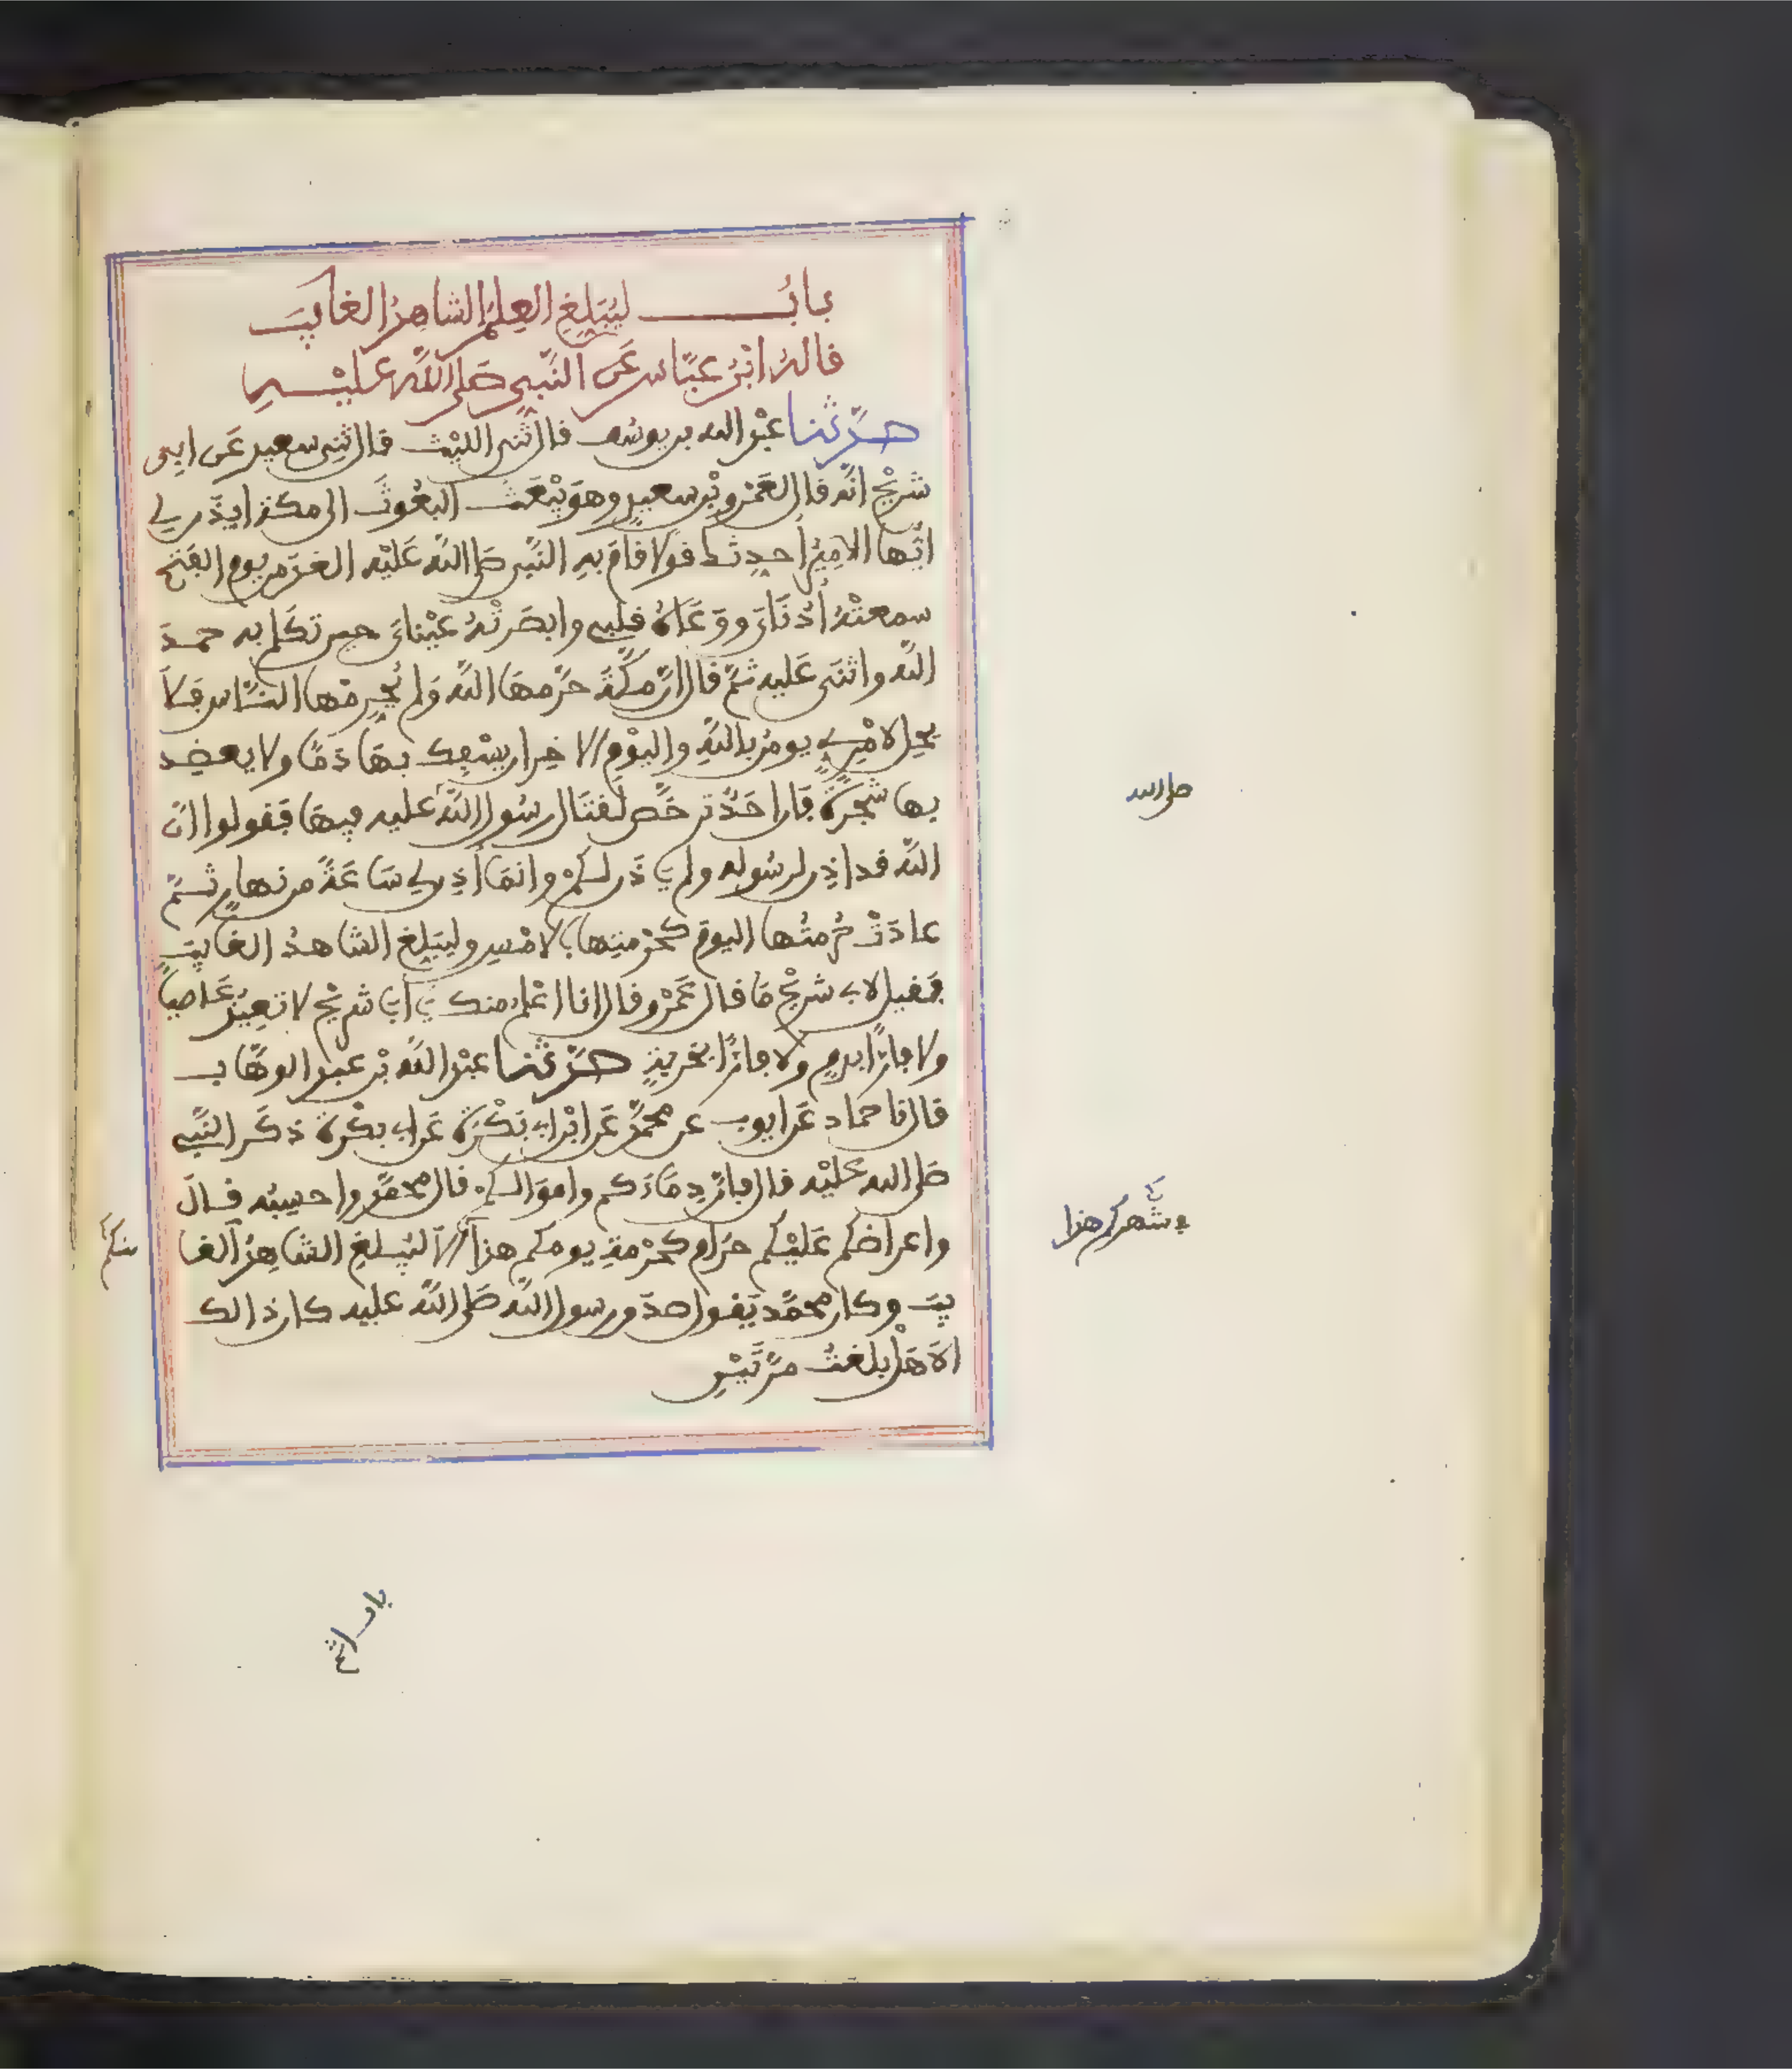 بابُ لِيُبَلِّغِ العِلْمَ الشاهِدُ الغائِبَ
قالهُ ابْنُ عبّاس عَن النَّبِي صَلى اللّٰه عليْهِ
حدَّثنا عبْد الله بن يوسُف قال ثنى الليْث قال ثنِى سعيد عَن ابِى
شريْح انّه قال لعَمْرو بْن سعيدٍ وهوَ يبْعَث البعُوثَ الى مكة ايذَن لِي
ايّها الامِيرُ أحدِثك قولا قامَ بهِ النَّبِى صَلى اللّٰه عَليْه الغدَ من يوم الفتح
سمعتْهُ أذنَايَ ووَعَاهُ قلبِي وابصَرتْهُ عيْنايَ حين تكلم به حمدَ
اللّٰه واثنَى عَليه ثمّ قال انّ مكّةَ حرّمهَا اللّٰه وَلم يُحرمْها النّاس فَلَا
يحِل لامْرِىٍٕ يومنُ باللّٰهِ واليوْمِ الاخِر ان يسْفِك بهَا دَمًا ولا يعضِد
بها شجَرةً فَان احَدٌ ترخَّص لقتَال رسُول اللّٰه عليه فيهَا فَقولوا انّ
اللّٰه قد اذِن لرسُوله ولم ياذَن لكمْ وانمَا أذِن لِي سَاعَةً من نهارٍ ثمّ
عادَتْ حُرمتُها اليومَ كحُرْمتِها بالامْسِ وليُبَلِغ الشاهدُ الغايِبَ
فَقيل لابِى شريْح مَا قال عَمْرو قال انا اعْلمُ منك يا أبا شريْح لا تعِيذ عَاصِيًا
ولا فارّا بدمٍ ولا فارًّا بخربةٍ حدَّثنا عبْد اللّٰه بْن عبد الوهَّاب
قال نا حماد عَن ايوب عن محمّدٍ عَن ابْن ابِى بَكْرَة عَن ابِى بكْرة ذكَر النَّبِي
صَلى الله عَليْه قال فانّ دِمَاءَكم وامْوَالكمْ قال محمّد واحسِبُه قالَ
واعراضَكم عَليْكم حرَام كحُرْمةِ يومكم هذا الا ليُبَلغِ الشاهِدُ الغا
يبَ وكان محمّد يَقول صدَق رسول اللّٰه صَلى اللّٰه عليه كان ذالك
الا هَلْ بلغتُ مرّتَيْنِ
صلى الله
فى شهركم هذا
منكم
باب اثم